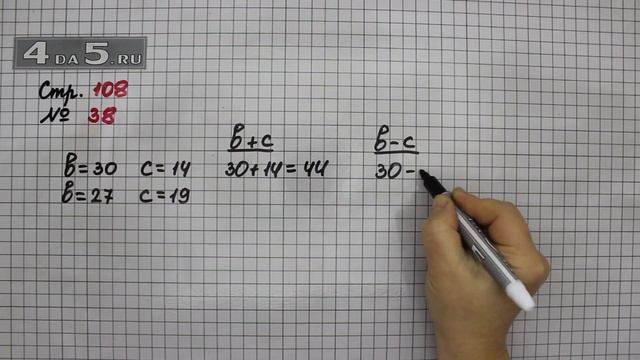 4 DA 5.RU
Стр. 108
№ 38
в+с в-с
в=30 с=14 30+14=44 30-
в=27 с=19